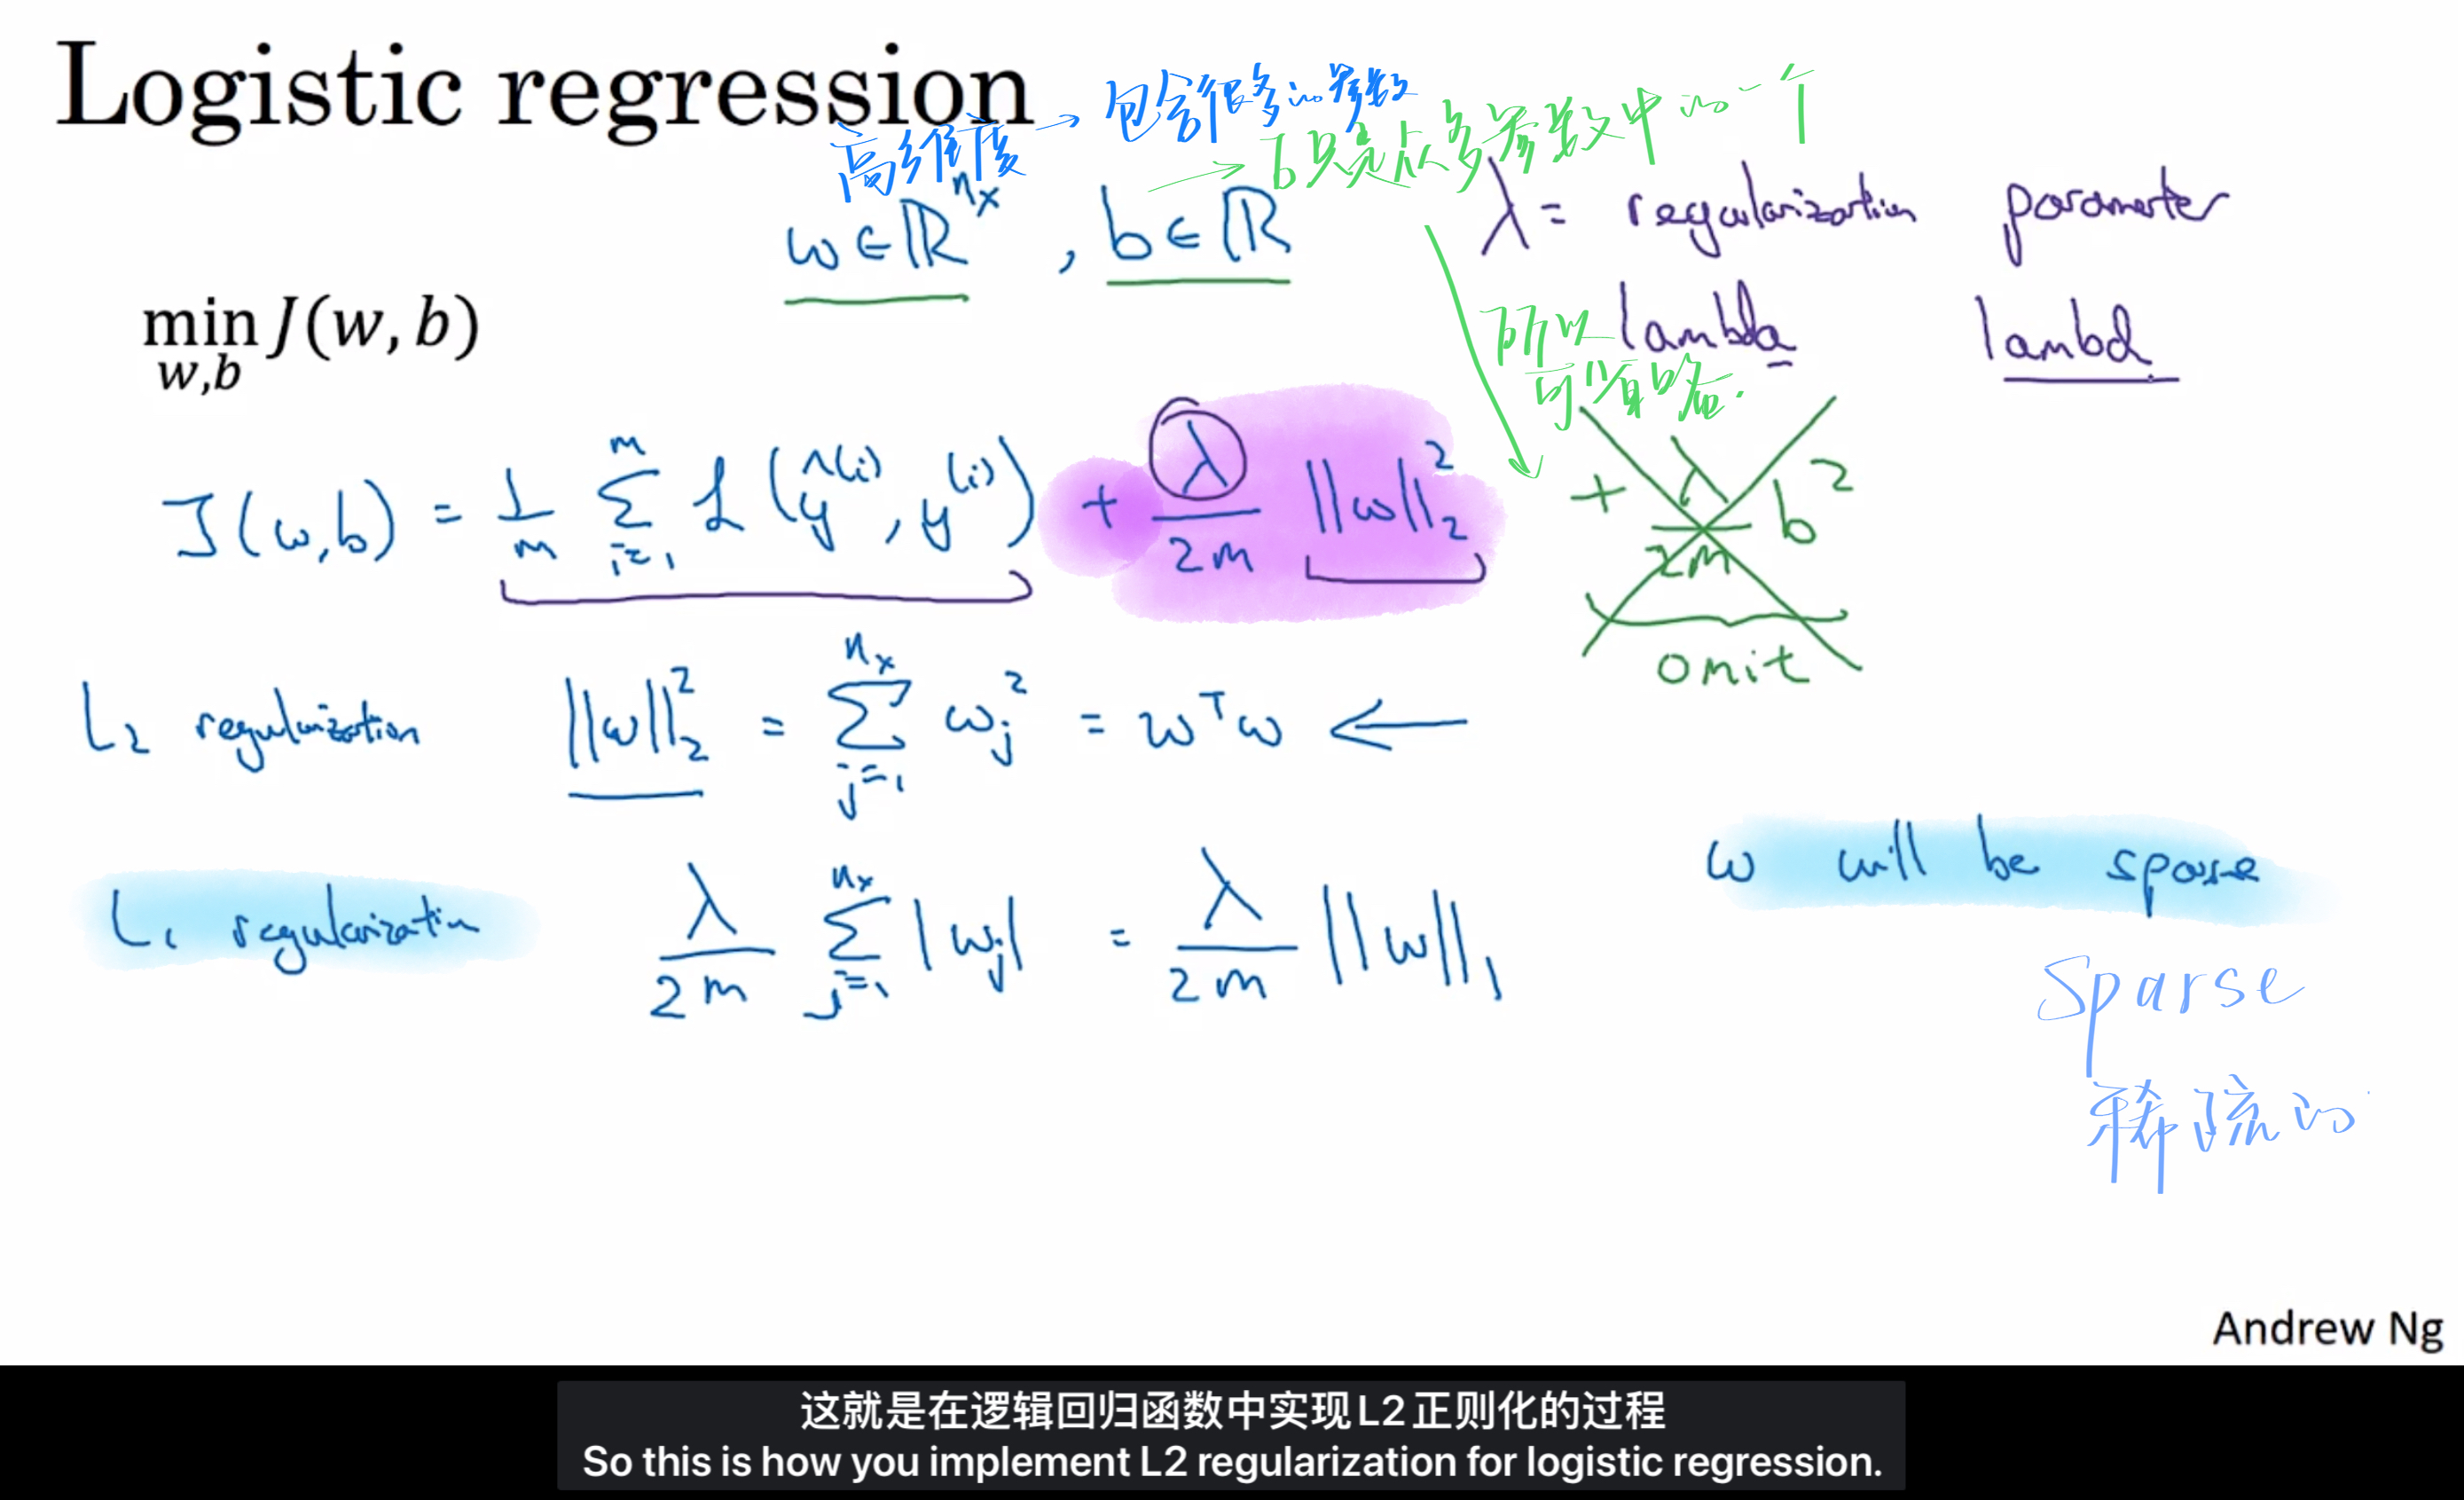 Logistic regression
高维度 → 包含很多的参数
→ b只是众多参数中的一个
w ∈ ℝ^{n_x}, b ∈ ℝ
λ = regularization parameter
lambda lambd
所以
可省略.
min_{w,b} J(w, b)
J(w,b) = 1/m Σ_{i=1}^{m} L(ŷ^{(i)}, y^{(i)}) + λ/2m ||w||_2^2 + λ/2m b^2
omit
L2 regularization ||w||_2^2 = Σ_{j=1}^{n_x} w_j^2 = w^T w ←
L1 regularization λ/2m Σ_{j=1}^{n_x} |w_j| = λ/2m ||w||_1
w will be sparse
Sparse
稀疏的
Andrew Ng
这就是在逻辑回归函数中实现L2正则化的过程
So this is how you implement L2 regularization for logistic regression.